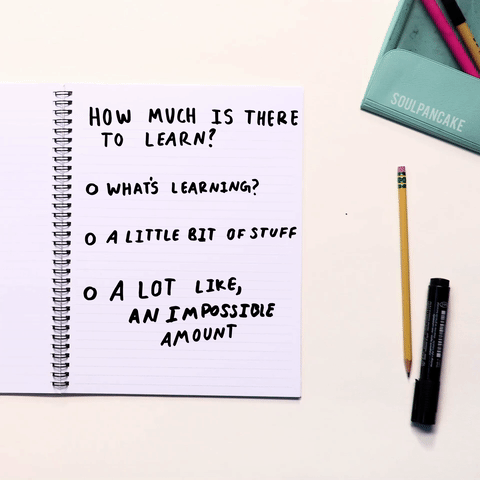 HOW MUCH IS THERE
TO LEARN?
O WHAT'S LEARNING?
O A LITTLE BIT OF STUFF
O A LOT LIKE,
AN IMPOSSIBLE
AMOUNT
SOULPANCAKE